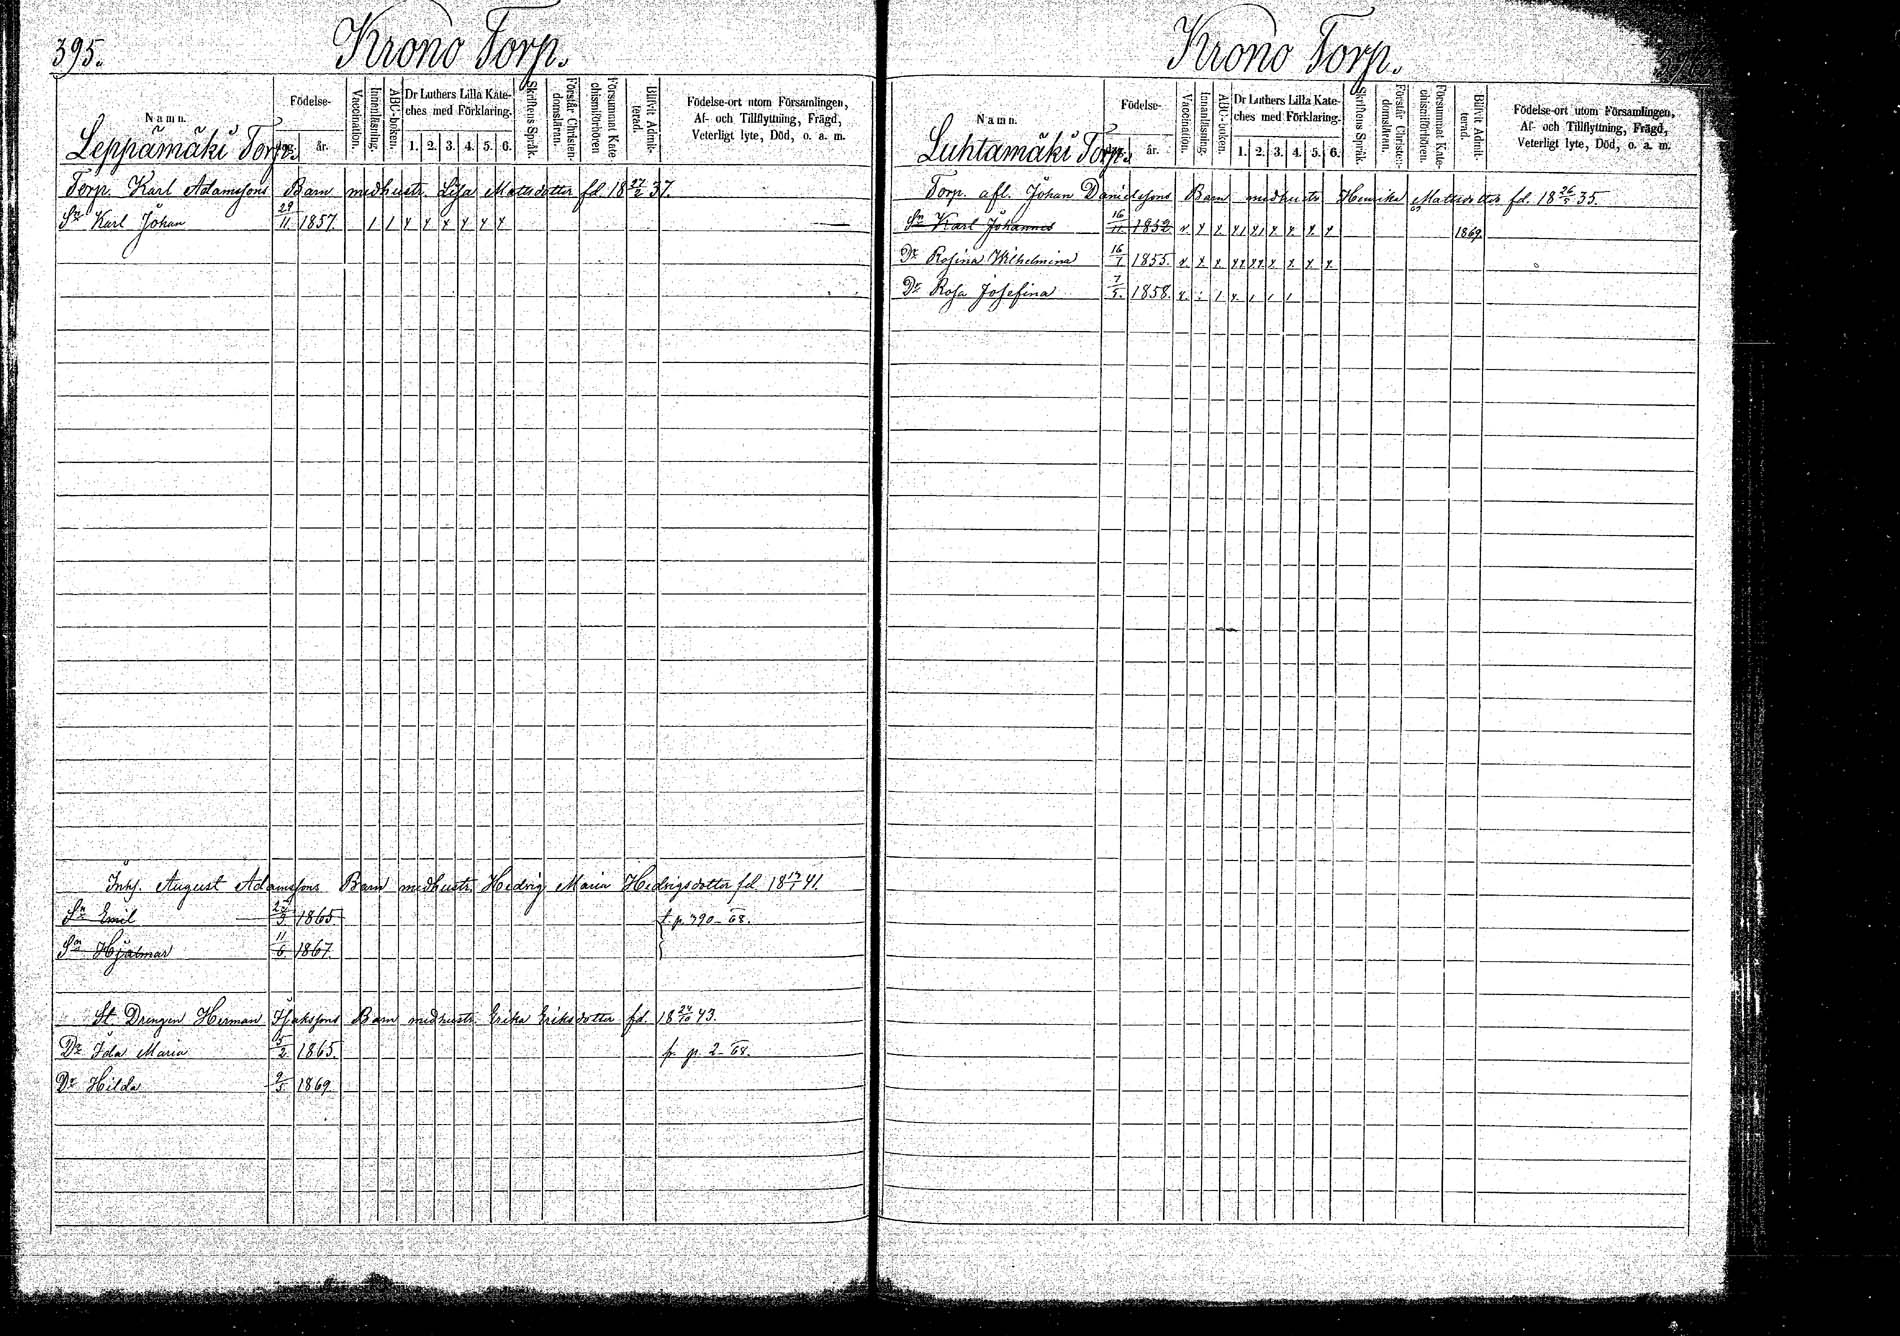 395.
Krono Torp.
Namn.
Födelse-
dag.
år.
Vaccination.
Innenläsning.
ABC-boken.
Dr Luthers Lilla Kate-
ches med Förklaring.
1. 2. 3. 4. 5. 6.
Skriftens Språk.
Förstår Christen-
domsläran.
Försummat Kate
chismiförhören
Blifvit Admit-
terad.
Födelse-ort utom Församlingen,
Af- och Tillflyttning, Frägd,
Veterligt lyte, Död, o. a. m.
Leppämäki Torp.
Torp. Karl Adamssons Barn med hustr. Lisa Mattsdotter fd. 18 2/37.
Sn Karl Johan 29/11 1857.
Inhs. August Adamssons Barn med hustr. Hedvig Maria Hedvigsdotter fd. 18 /1 41.
Sn Emil 1865 t. p. 390 - 68.
Sn Hjalmar 11/6 1867.
St. Drengen Herman Isakssons Barn med hustr. Erika Eriksdotter fd. 18 24/10 43.
Dr Ida Maria 1865. fr. p. 2 - 68.
Dr Hilda 9/5 1869
Krono Torp.
Namn.
Födelse-
dag.
år.
Vaccination.
Innanläsning.
ABC-boken.
Dr Luthers Lilla Kate-
ches med Förklaring.
1. 2. 3. 4. 5. 6.
Skriftens Språk.
Förstår Christen-
domsläran.
Försummat Kate-
chismiförhören.
Blifvit Admit-
terad.
Födelse-ort utom Församlingen,
Af- och Tillflyttning, Frägd,
Veterligt lyte, Död, o. a. m.
Luhtamäki Torp.
Torp. afl. Johan Danielssons Barn med hustr. Henrika Mattsdotter fd. 18 26/5 35.
Sn Karl Johannes 16/11 1852 1869.
Dr Rosina Wilhelmina 16/1 1855.
Dr Rosa Josefina 7/5. 1858.